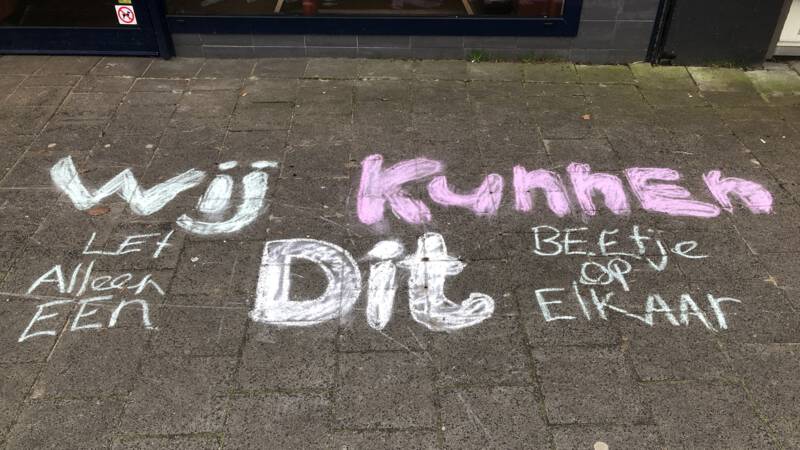 Wij Kunnen
Dit
LET
Alleen
EEN
BEEtje
OP
ElKAAR